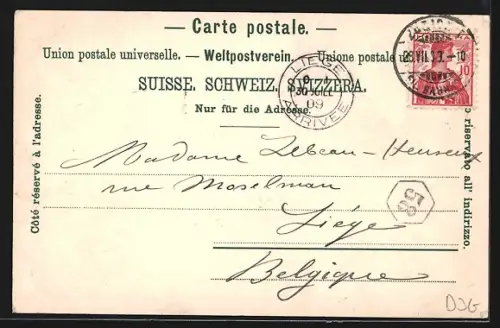 — Carte postale. —
Union postale universelle. — Weltpostverein. — Unione postale
SUISSE. SCHWEIZ. SVIZZERA.
Nur für die Adresse.
Côté réservé à l'adresse.
riservato all' indirizzo.
LIEGE
30 JUIL
09
ARRIVEE
10
Madame Lebeau-Heuseux
rue Moselman
Liége
Belgique
D36